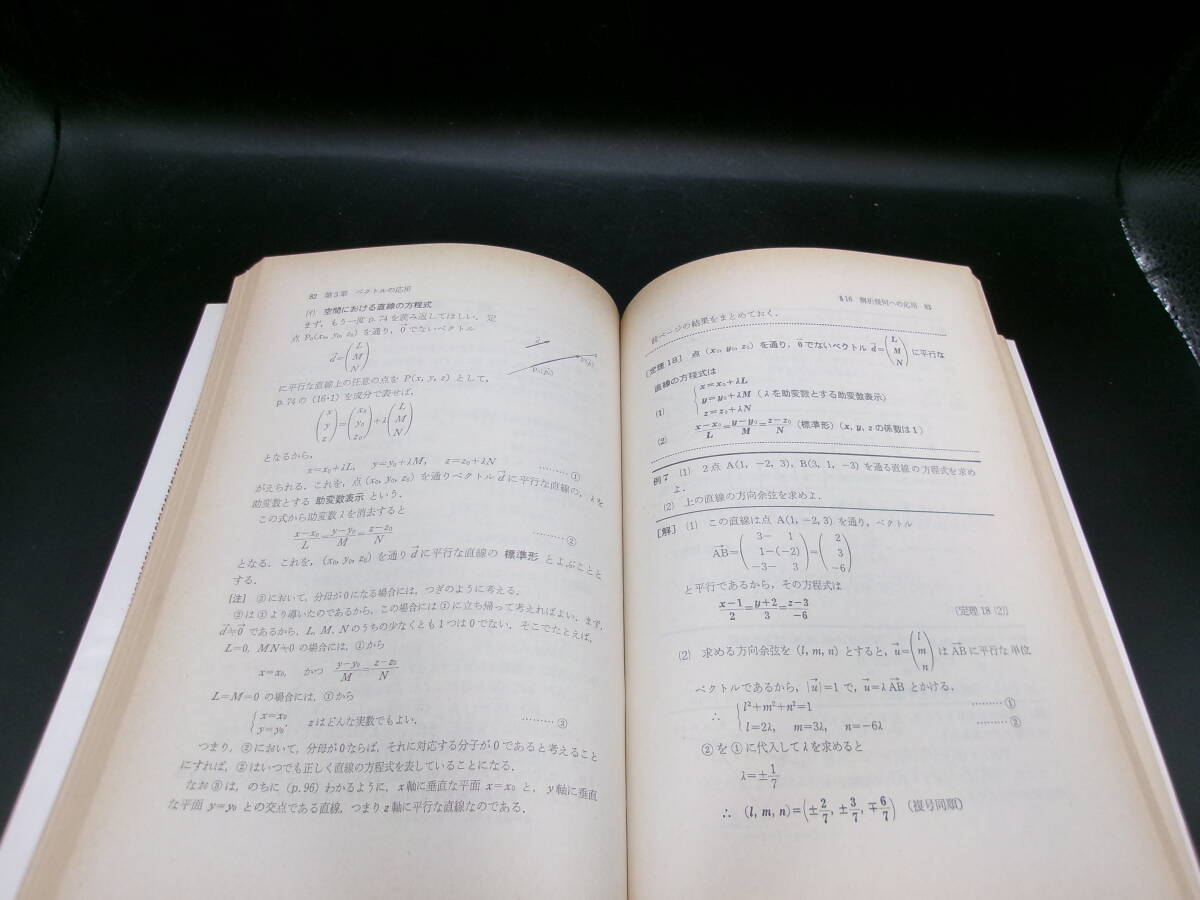 82 第3章 ベクトルの応用
(イ) 空間における直線の方程式
まず,もう一度 p.74 を読み返してほしい.定
点 P₀(x₀, y₀, z₀) を通り,0⃗ でないベクトル
d⃗=(L M N)
に平行な直線上の任意の点を P(x, y, z) として,
p.74 の (16・1) を成分で表せば,
(x y z)=(x₀ y₀ z₀)+λ(L M N)
となるから,
x=x₀+λL, y=y₀+λM, z=z₀+λN ………①
がえられる.これを,点 (x₀, y₀, z₀) を通りベクトル d⃗ に平行な直線の,λを
助変数とする 助変数表示 という.
この式から助変数 λ を消去すると
(x−x₀)/L=(y−y₀)/M=(z−z₀)/N ………②
となる.これを,(x₀, y₀, z₀) を通り d⃗ に平行な直線の 標準形 とよぶことと
する.
[注] ②において,分母が0になる場合には,つぎのように考える.
②は①より導いたのであるから,この場合には①に立ち帰って考えればよい.まず,
d⃗≒0⃗ であるから,L, M, N のうちの少なくとも1つは0でない.そこでたとえば,
L=0, MN≒0 の場合には,①から
x=x₀, かつ (y−y₀)/M=(z−z₀)/N
L=M=0 の場合には,①から
{x=x₀ y=y₀, zはどんな実数でもよい. ………③
つまり,②において,分母が0ならば,それに対応する分子が0であると考えること
にすれば,②はいつでも正しく直線の方程式を表していることになる.
なお③は,のちに (p.96) わかるように,x軸に垂直な平面 x=x₀ と,y軸に垂直
な平面 y=y₀ との交点である直線,つまりz軸に平行な直線なのである.
§16 解析幾何への応用 83
前ページの結果をまとめておく.
[定理 18] 点 (x₀, y₀, z₀) を通り,0⃗ でないベクトル d⃗=(L M N) に平行な
直線の方程式は
(1) {x=x₀+λL y=y₀+λM z=z₀+λN (λを助変数とする助変数表示)
(2) (x−x₀)/L=(y−y₀)/M=(z−z₀)/N (標準形) (x, y, z の係数は1)
例7 (1) 2点 A(1, −2, 3), B(3, 1, −3) を通る直線の方程式を求め
よ.
(2) 上の直線の方向余弦を求めよ.
[解] (1) この直線は点 A(1, −2, 3) を通り,ベクトル
AB⃗=(3− 1 1−(−2) −3− 3)=(2 3 −6)
と平行であるから,その方程式は
(x−1)/2=(y+2)/3=(z−3)/−6 [定理 18 (2)]
(2) 求める方向余弦を (l, m, n) とすると,u⃗=(l m n) は AB⃗ に平行な単位
ベクトルであるから,|u⃗|=1 で,u⃗=λAB⃗ とかける.
∴ {l²+m²+n²=1 ………①
l=2λ, m=3λ, n=−6λ ………②
②を①に代入してλを求めると
λ=±1/7
∴ (l, m, n)=(±2/7, ±3/7, ∓6/7) (複号同順)